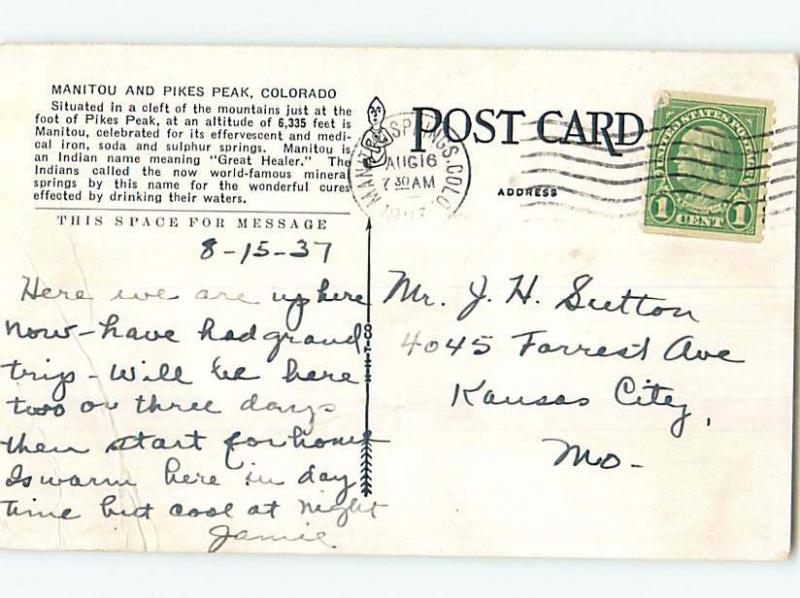 MANITOU AND PIKES PEAK, COLORADO
Situated in a cleft of the mountains just at the
foot of Pikes Peak, at an altitude of 6,335 feet is
Manitou, celebrated for its effervescent and medi-
cal iron, soda and sulphur springs. Manitou is
an Indian name meaning "Great Healer." The
Indians called the now world-famous mineral
springs by this name for the wonderful cures
effected by drinking their waters.
THIS SPACE FOR MESSAGE
8-15-37
Here we are up here
now - have had grand
trip - Will be here
two or three days
then start for home
Is warm here in day
time but cool at night
Jamie
POST CARD
MANITOU SPRINGS, COLO.
AUG 16
7 30 AM
ADDRESS
UNITED STATES POSTAGE
1 CENT 1
Mr. J. H. Sutton
4045 Forrest Ave
Kansas City,
Mo-